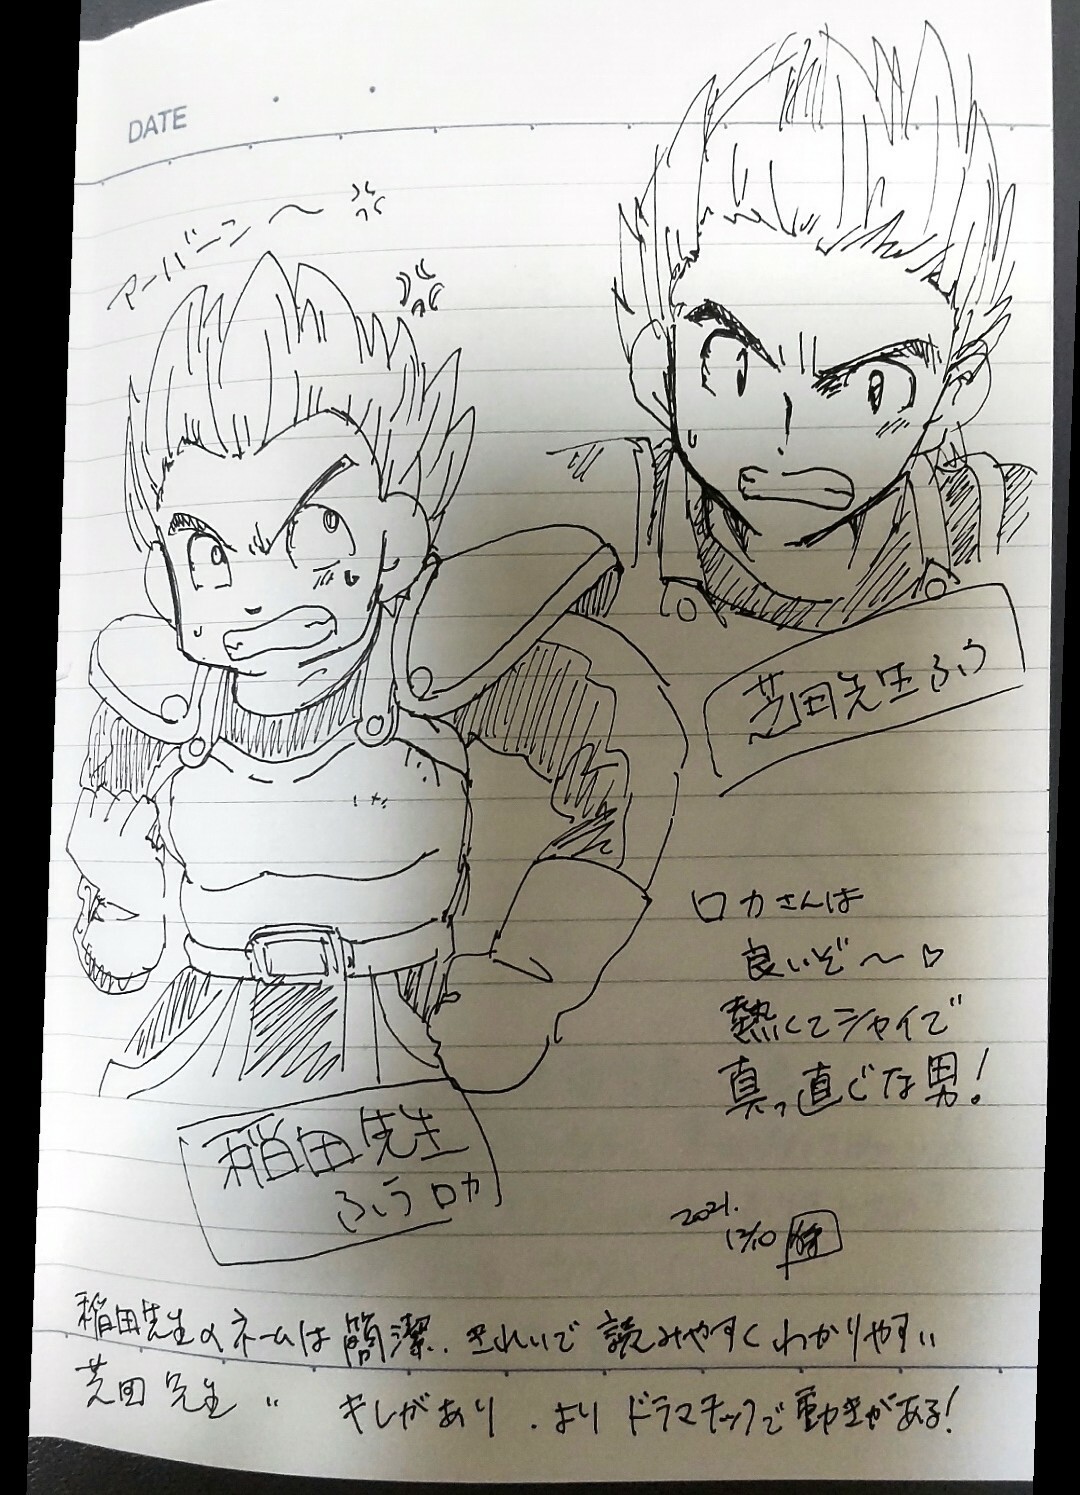 DATE
アーバニン〜
芝田先生ふう
ロカさんは
良いぞ〜♡
熱くてシャイで
真っ直ぐな男!
稲田先生
ふうロカ
2021.
12/10
稲田先生のネームは簡潔.きれいで読みやすくわかりやすい
芝田先生 〃 キレがあり.よりドラマチックで動きがある!